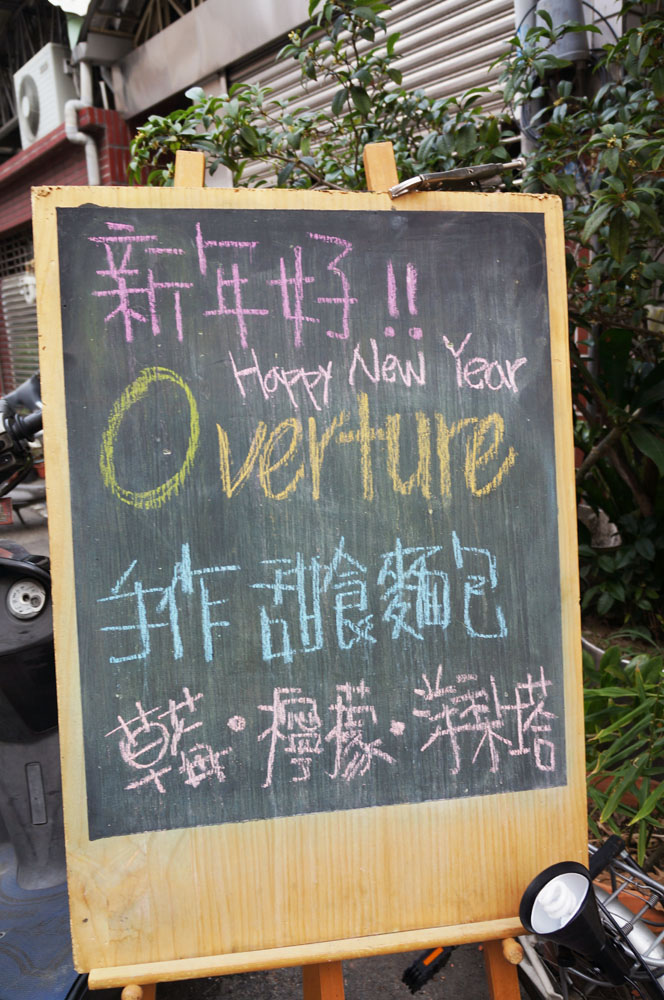 新年好!!
Happy New Year
Overture
手作 甜食麵包
草莓・檸檬・洋梨塔